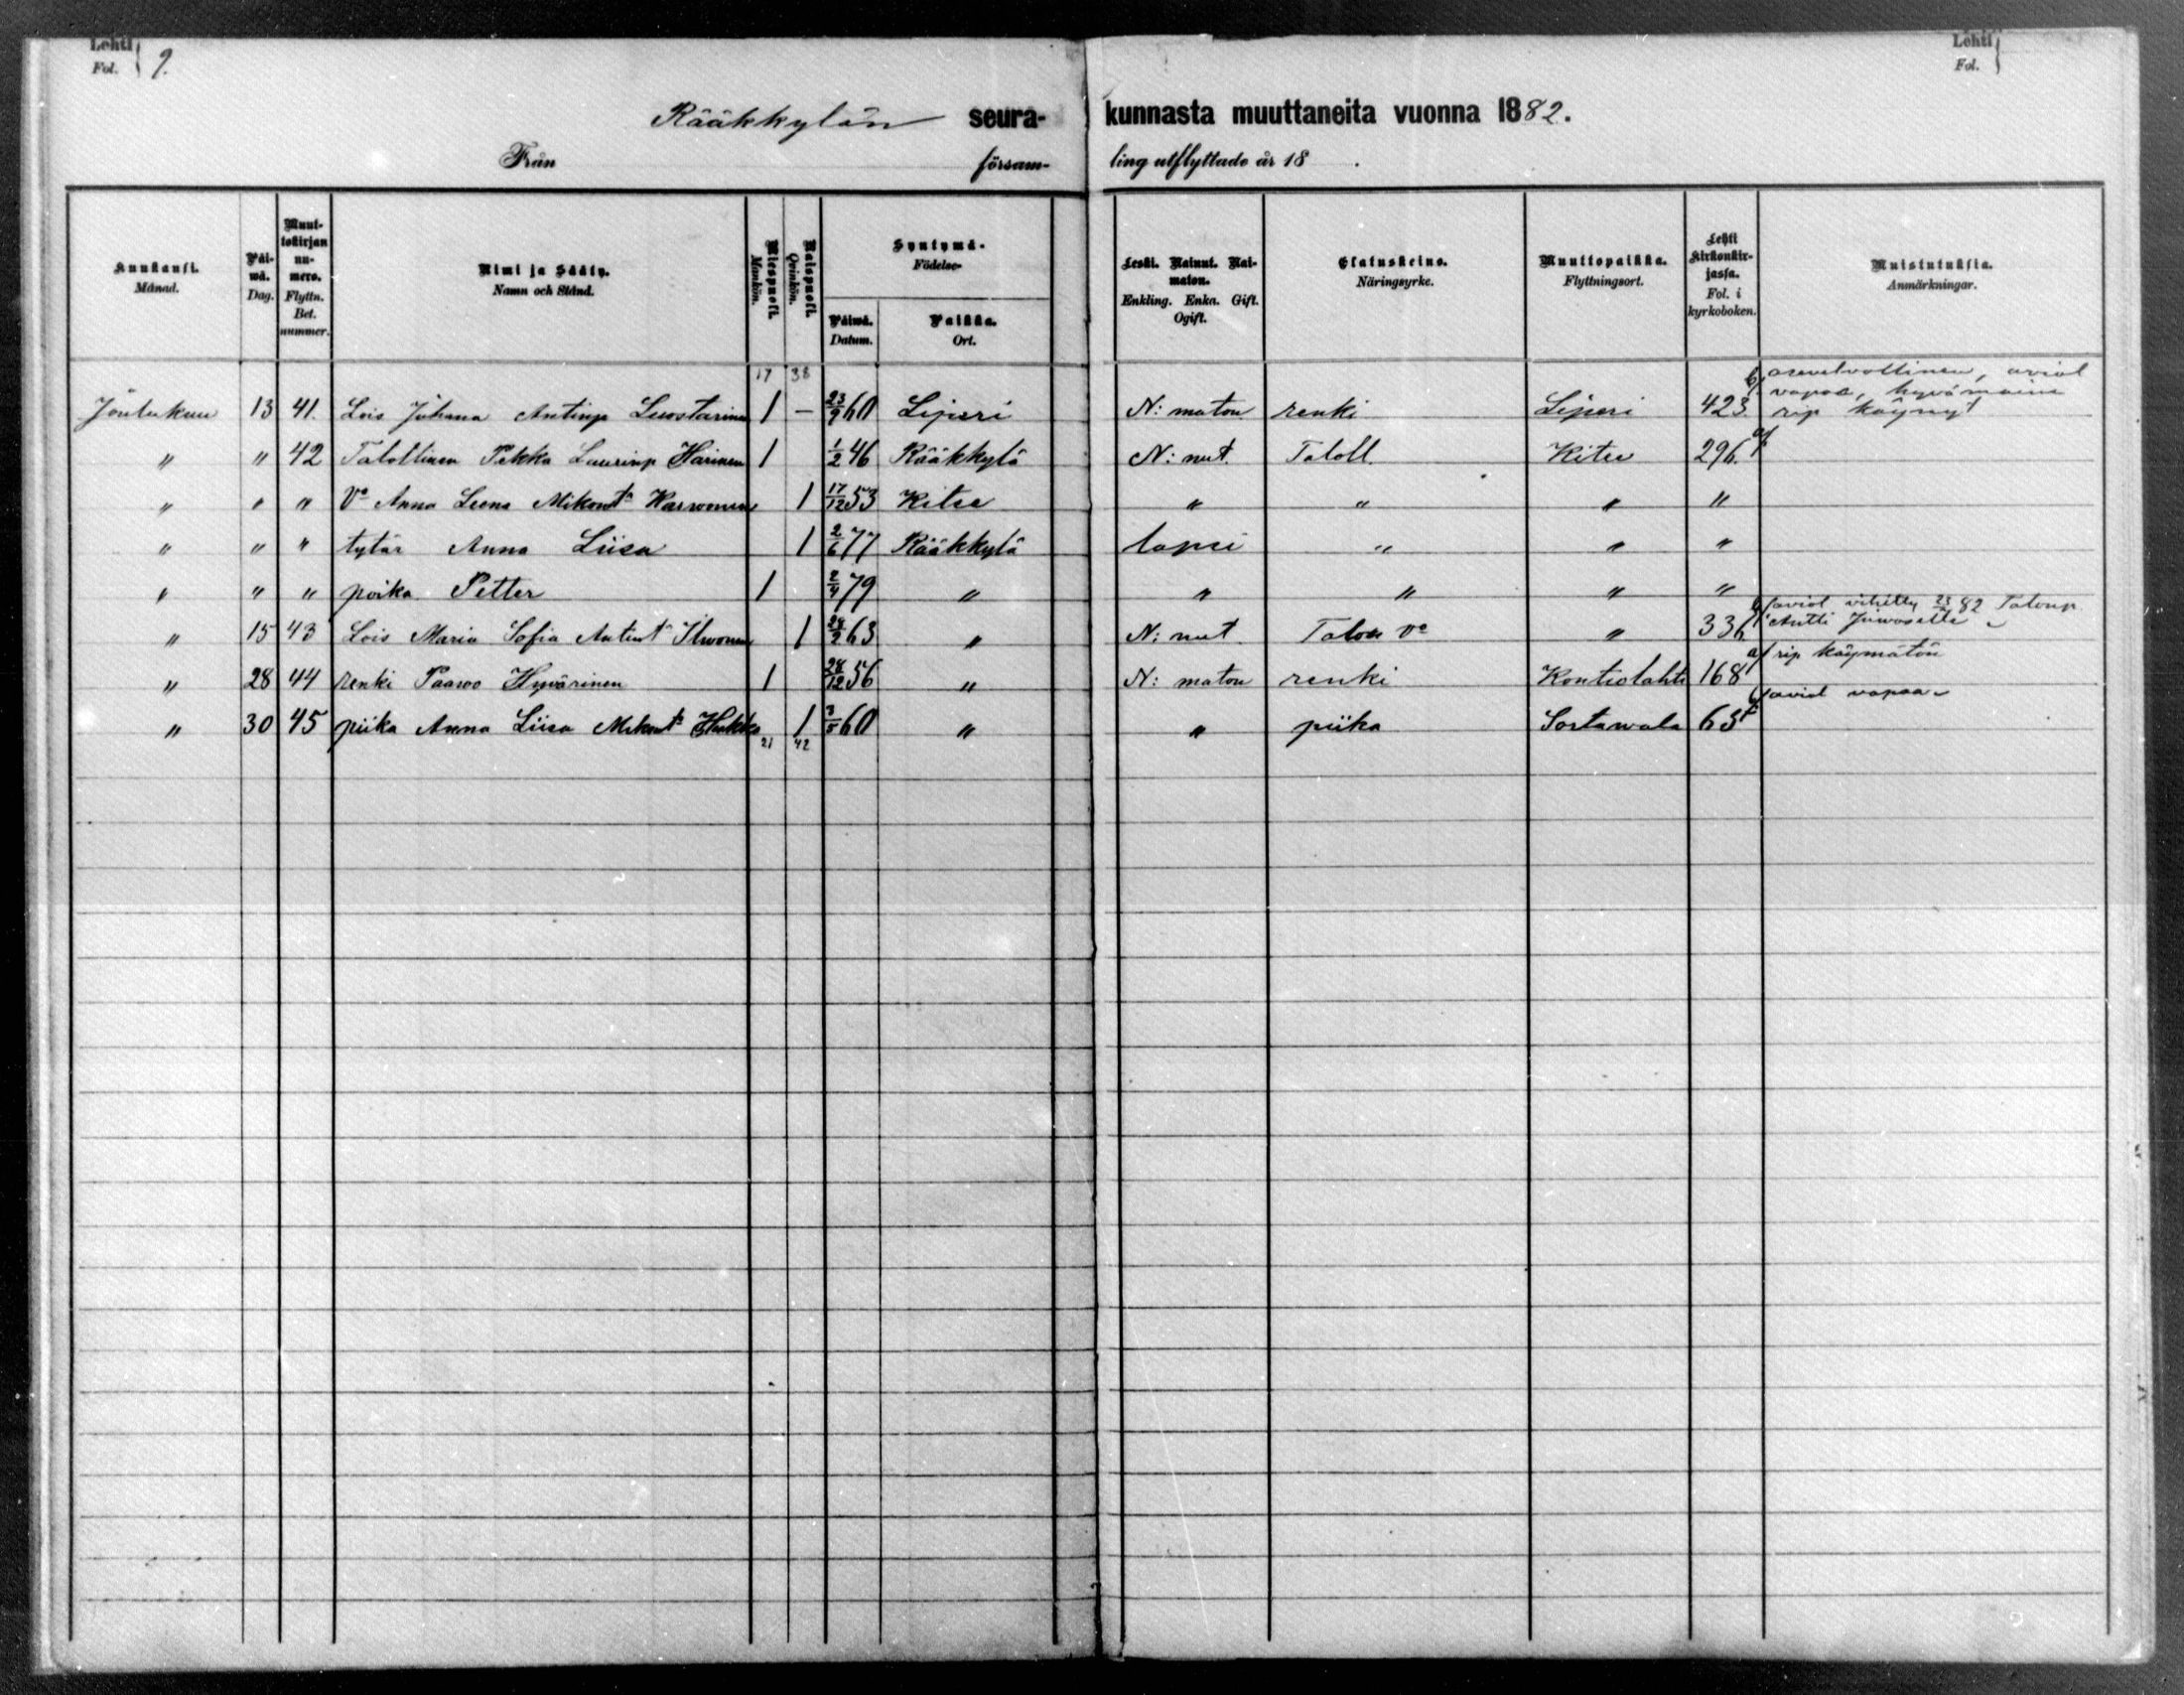 Lehti } 9.
Fol.
Lehti }
Fol.
Rääkkylän seura- kunnasta muuttaneita vuonna 1882.
Från försam- ling utflyttade år 18 .
Kuukausi. Månad.
Päi-wä. Dag.
Muut-tokirjan nu-mero. Flyttn. Bet. nummer.
Nimi ja Sääty. Namn och Stånd.
Miespuoli. Mankön.
Naispuoli. Qvinkön.
Syntymä- Födelse-
Päiwä. Datum.
Paikka. Ort.
Leski. Nainut. Nai-maton. Enkling. Enka. Gift. Ogift.
Elatuskeino. Näringsyrke.
Muuttopaikka. Flyttningsort.
Lehti Kirkonkir-jassa. Fol. i kyrkoboken.
Muistutuksia. Anmärkningar.
17 38
asevelvollinen, aviol
vapaa, hyvämaine
Joulukuu 13 41. Lois Juhana Antinp Luostarinen 1 – 23/9 60 Liperi N: maton renki Liperi 423 b/ rip käynyt
" " 42 Talollinen Pekka Laurinp Härinen 1 1/2 46 Rääkkylä N: nut. Taloll. Kitee 296. a/
" " " Vo Anna Leena Mikont Karvonen 1 17/12 53 Kitee " " " "
" " " tytär Anna Liisa 1 2/6 77 Rääkkylä lapsi " " "
" " " poika Petter 1 2/4 79 " " " " "
aviol vihitty 82 Talonp
" 15 43 Lois Maria Sofia Antint Ilvonen 1 28/2 63 " N: nut Talon vo " 336 Antti
a/ rip käymätön
" 28 44 renki Paavo Hyvärinen 1 28/12 56 " N: maton renki Kontiolahti 168
aviol vapaa
" 30 45 piika Anna Liisa Mikont Hukka 1 3/5 60 " " piika Sortawala 63
21 42